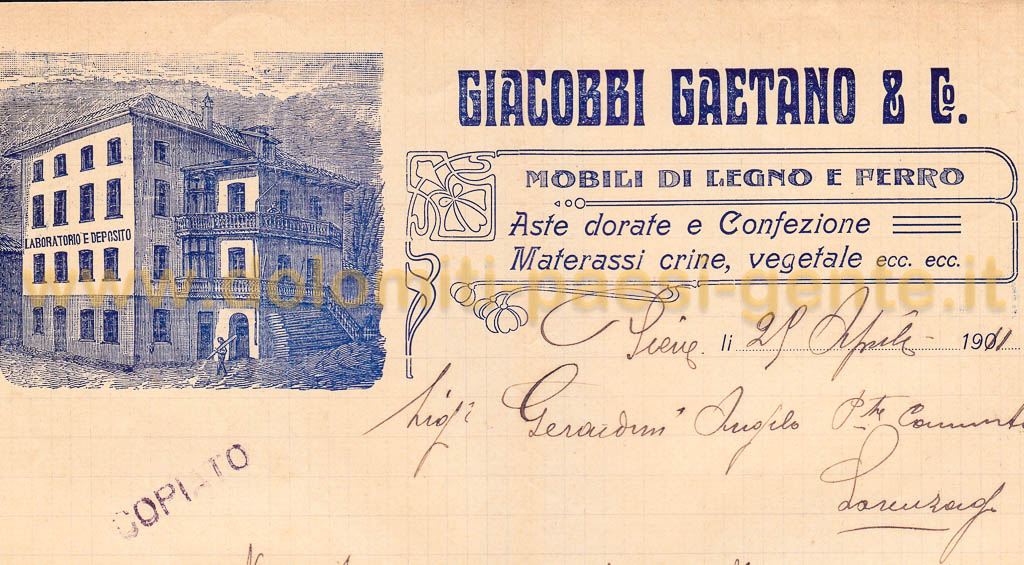 GIACOBBI GAETANO & Co.
MOBILI DI LEGNO E FERRO
Aste dorate e Confezione
Materassi crine, vegetale ecc. ecc.
LABORATORIO E DEPOSITO
www.dolomiti-paesi-gente.it
Pieve li 25 Aprile 1911
Sigr Gerardini Angelo
Lorenzago
COPIATO